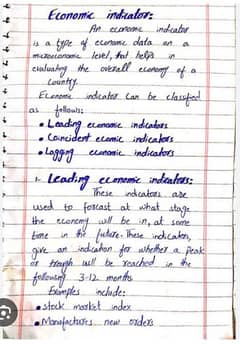 Economic indicator:
An economic indicator
is a type of economic data on a
microeconomic level, that helps in
evaluating the overall economy of a
country.
Economic indicator can be classified
as follows:
• Leading economic indicators
• Coincident ecomic indicators
• Lagging economic indicators
1. Leading economic indicators:
These indicators are
used to forcast at what stage
the economy will be in, at some
time in the future. These indicators,
give an indication for whether a peak
or trough will be reached in the
following 3-12 months
Examples include:
• stock market index
• Manufactures new orders